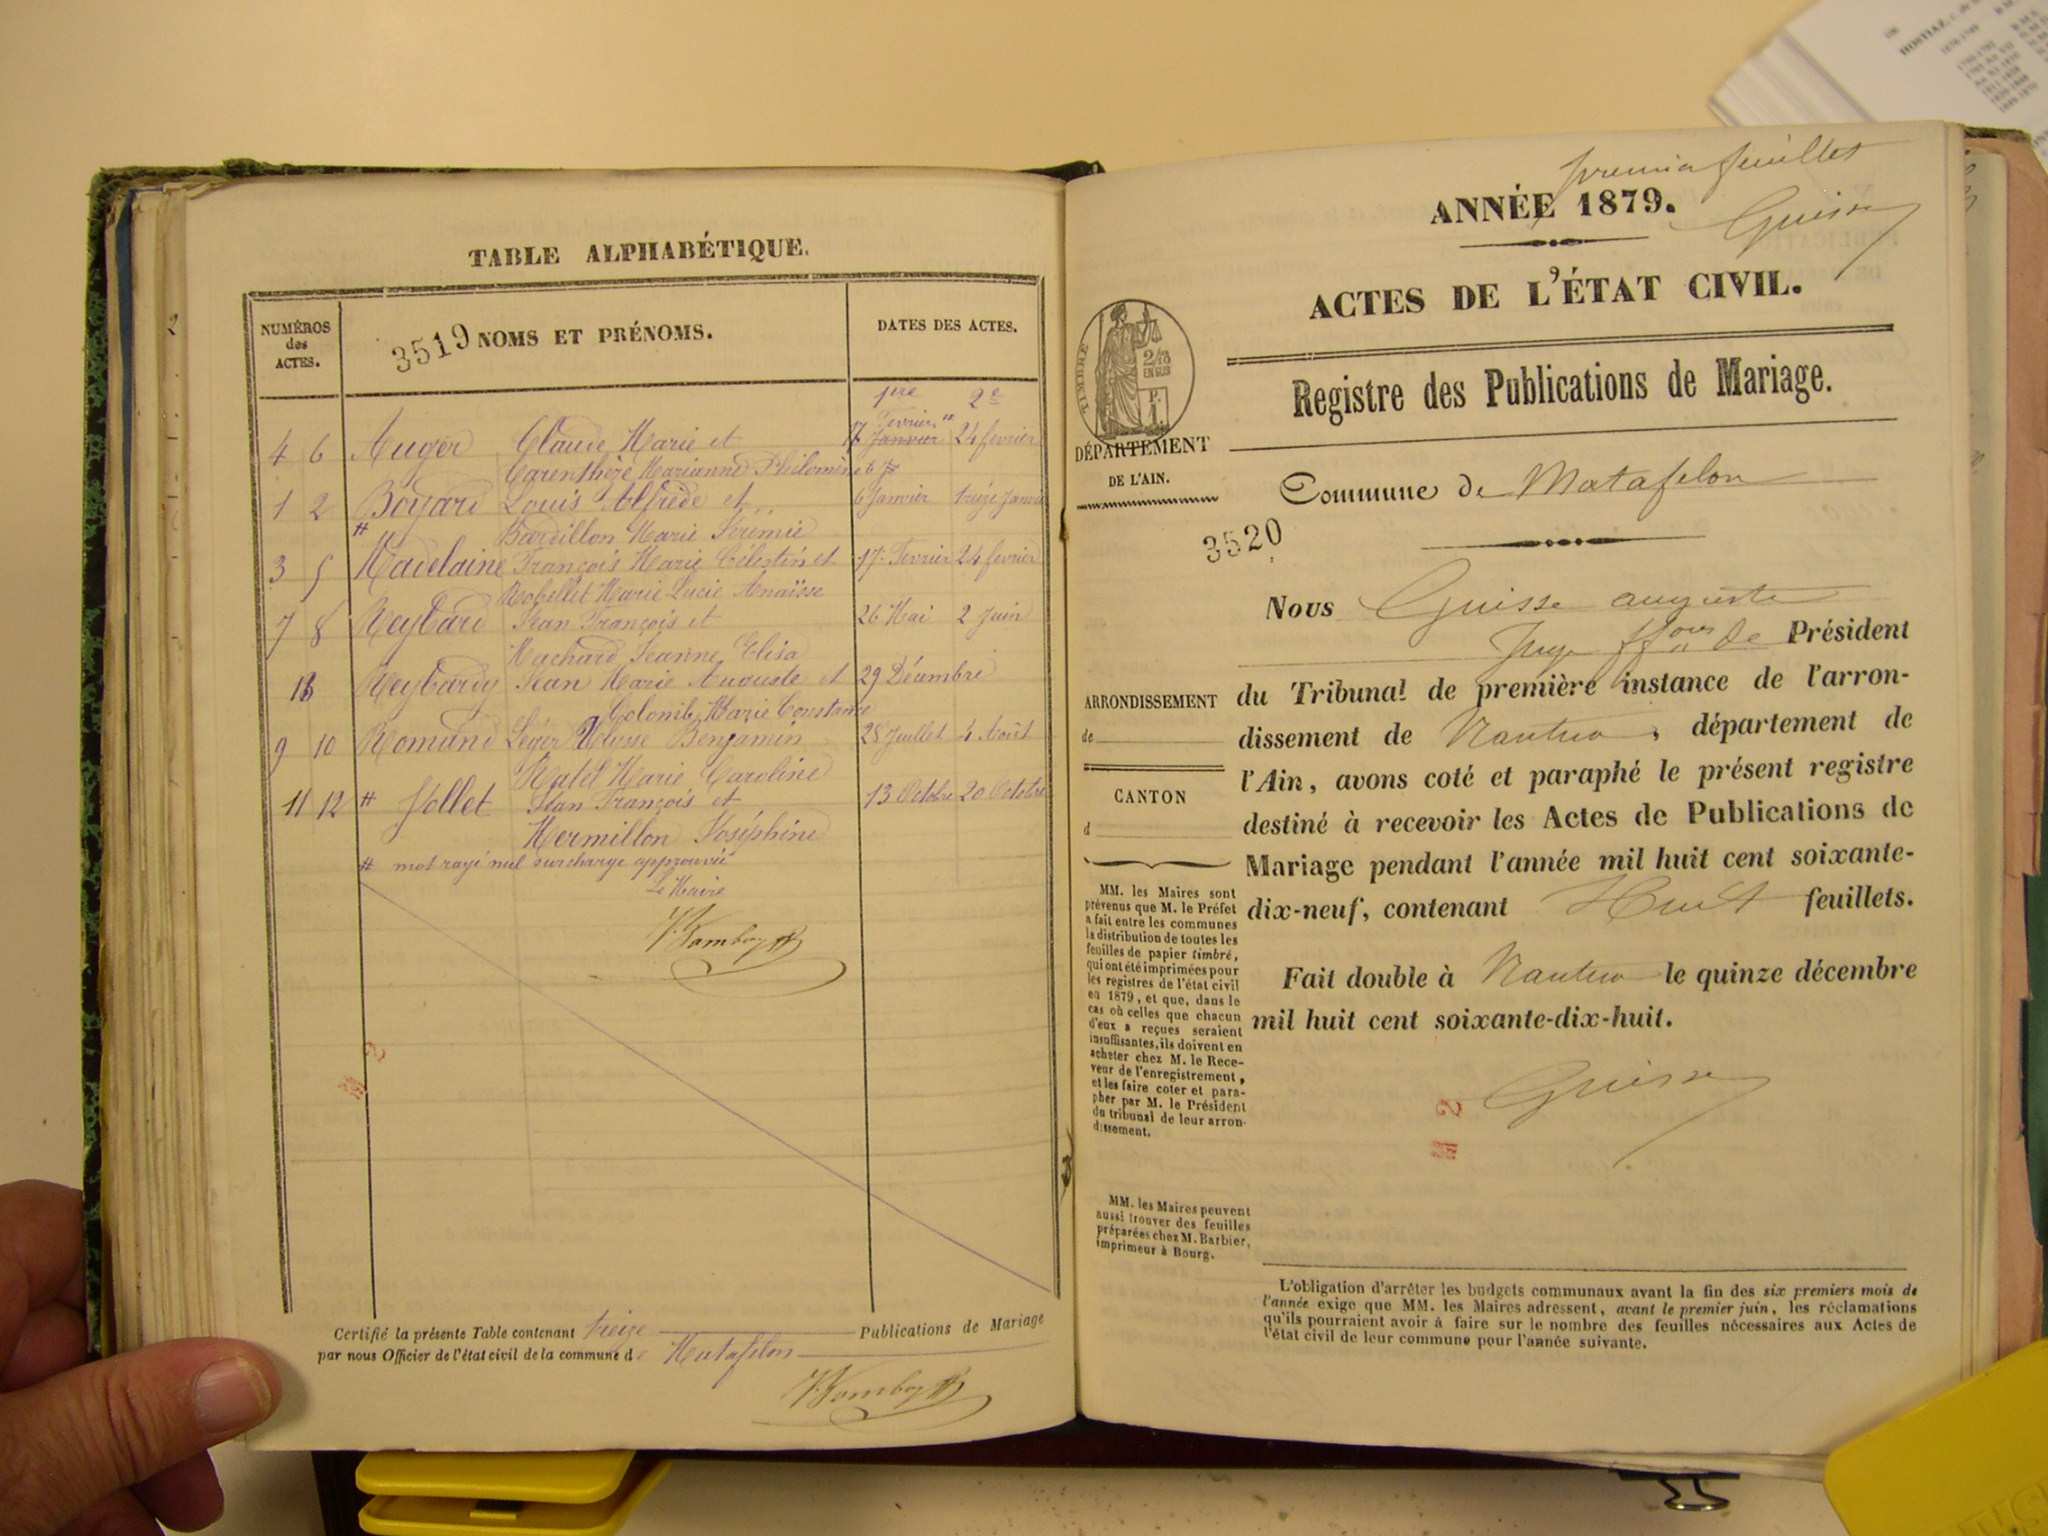 TABLE ALPHABÉTIQUE.
NUMÉROS des ACTES.
3519 NOMS ET PRÉNOMS.
DATES DES ACTES.
1re 2e
Fevrier
4 6 Auger Claude Marie et 17 Janvier 24 fevrier
Carenthèze Marianne Philomène
1 2 Boyard Louis Alfrède et 6 Janvier treize Janvier
# Bardillon Marie
3 5 Madelaine François Marie Célestin et 17 Fevrier 24 fevrier
Robellet Marie Lucie Anaïsse
7 8 Reybard Jean François et 26 Mai 2 Juin
Machard Jeanne Elisa
13 Reybardy Jean Marie Auguste et 29 Décembre
Colomb Marie Constance
9 10 Romand Léger Ulysse Benjamin 28 Juillet 4 Août
Ratel Marie Caroline
11 12 # Jollet Jean François et 13 Octobre 20 Octobre
Hermillon Joséphine
# mot rayé nul surcharge approuvée
Le Maire
Certifié la présente Table contenant treize Publications de Mariage
par nous Officier de l'état civil de la commune de Matafelon
premier feuillet
ANNÉE 1879.
Guisse
ACTES DE L'ÉTAT CIVIL.
TIMBRE
2/10
EN SUS
P.
1.
Registre des Publications de Mariage.
DÉPARTEMENT
DE L'AIN.
Commune de Matafelon
3520
Nous Guisse auguste
Juge ffons de Président
ARRONDISSEMENT
de
du Tribunal de première instance de l'arron-
dissement de Nantua, département de
l'Ain, avons coté et paraphé le présent registre
CANTON
d
destiné à recevoir les Actes de Publications de
Mariage pendant l'année mil huit cent soixante-
dix-neuf, contenant Huit feuillets.
MM. les Maires sont
prévenus que M. le Préfet
a fait entre les communes
la distribution de toutes les
feuilles de papier timbré,
qui ont été imprimées pour
les registres de l'état civil
en 1879, et que, dans le
cas où celles que chacun
d'eux a reçues seraient
insuffisantes, ils doivent en
acheter chez M. le Rece-
veur de l'enregistrement,
et les faire coter et para-
pher par M. le Président
du tribunal de leur arron-
dissement.
Fait double à Nantua le quinze décembre
mil huit cent soixante-dix-huit.
Guisse
MM. les Maires peuvent
aussi trouver des feuilles
préparées chez M. Barbier,
imprimeur à Bourg.
L'obligation d'arrêter les budgets communaux avant la fin des six premiers mois de
l'année exige que MM. les Maires adressent, avant le premier juin, les réclamations
qu'ils pourraient avoir à faire sur le nombre des feuilles nécessaires aux Actes de
l'état civil de leur commune pour l'année suivante.